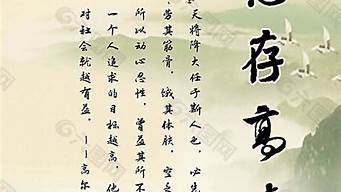 存高
天将降大任于斯人也，必先
劳其筋骨，饿其体肤，空乏
所以动心忍性，曾益其所不
一个人追求的目标越高，他
对社会就越有益。—高尔